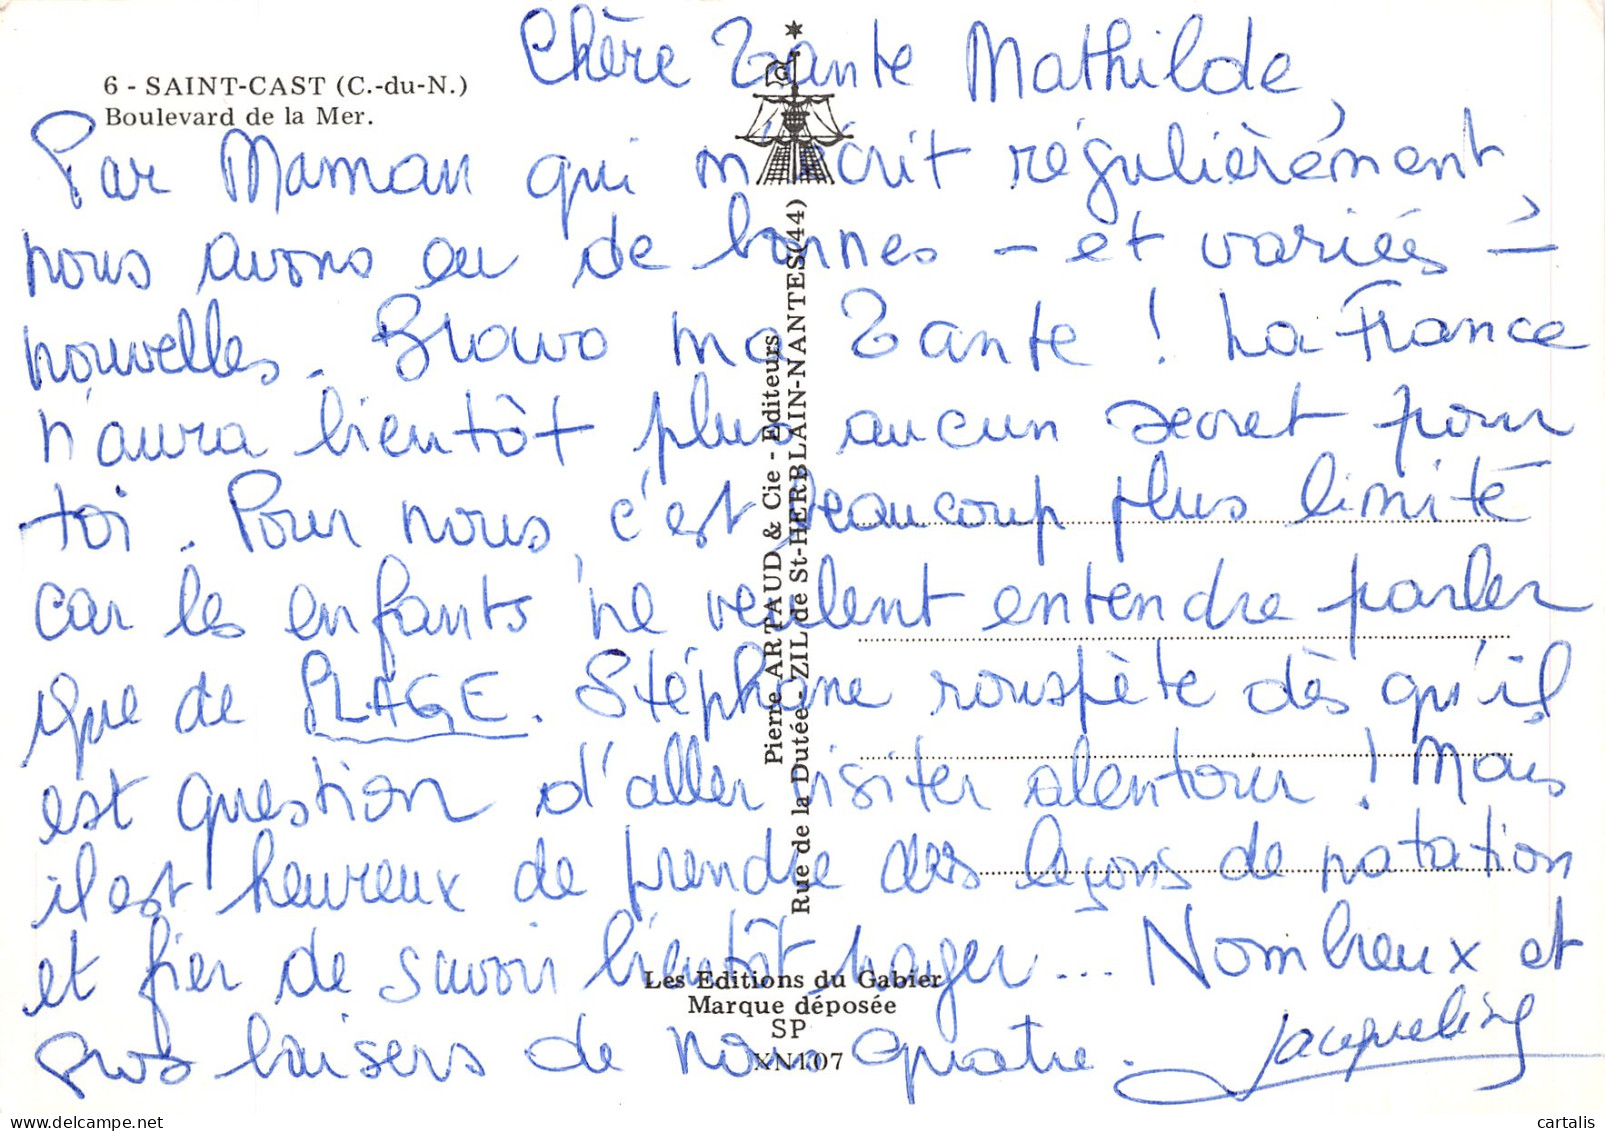 6 - SAINT-CAST (C.-du-N.)
Boulevard de la Mer.
Chère Tante Mathilde,
Par Maman qui m'écrit régulièrement
nous avons eu de bonnes - et variées -
nouvelles. Bravo ma Tante ! La France
n'aura bientôt plus aucun secret pour
toi. Pour nous, c'est beaucoup plus limité
car les enfants ne veulent entendre parler
que de PLAGE. Stéphane rouspète dès qu'il
est question d'aller visiter alentour ! Mais
il est heureux de prendre des leçons de natation
et fier de savoir bientôt nager... Nombreux et
gros baisers de nous quatre.
Jacqueline
Pierre ARTAUD & Cie - Editeurs
Rue de la Dutée - ZIL de St-HERBLAIN-NANTES (44)
Les Editions du Gabier
Marque déposée
SP
XN107
cartalis